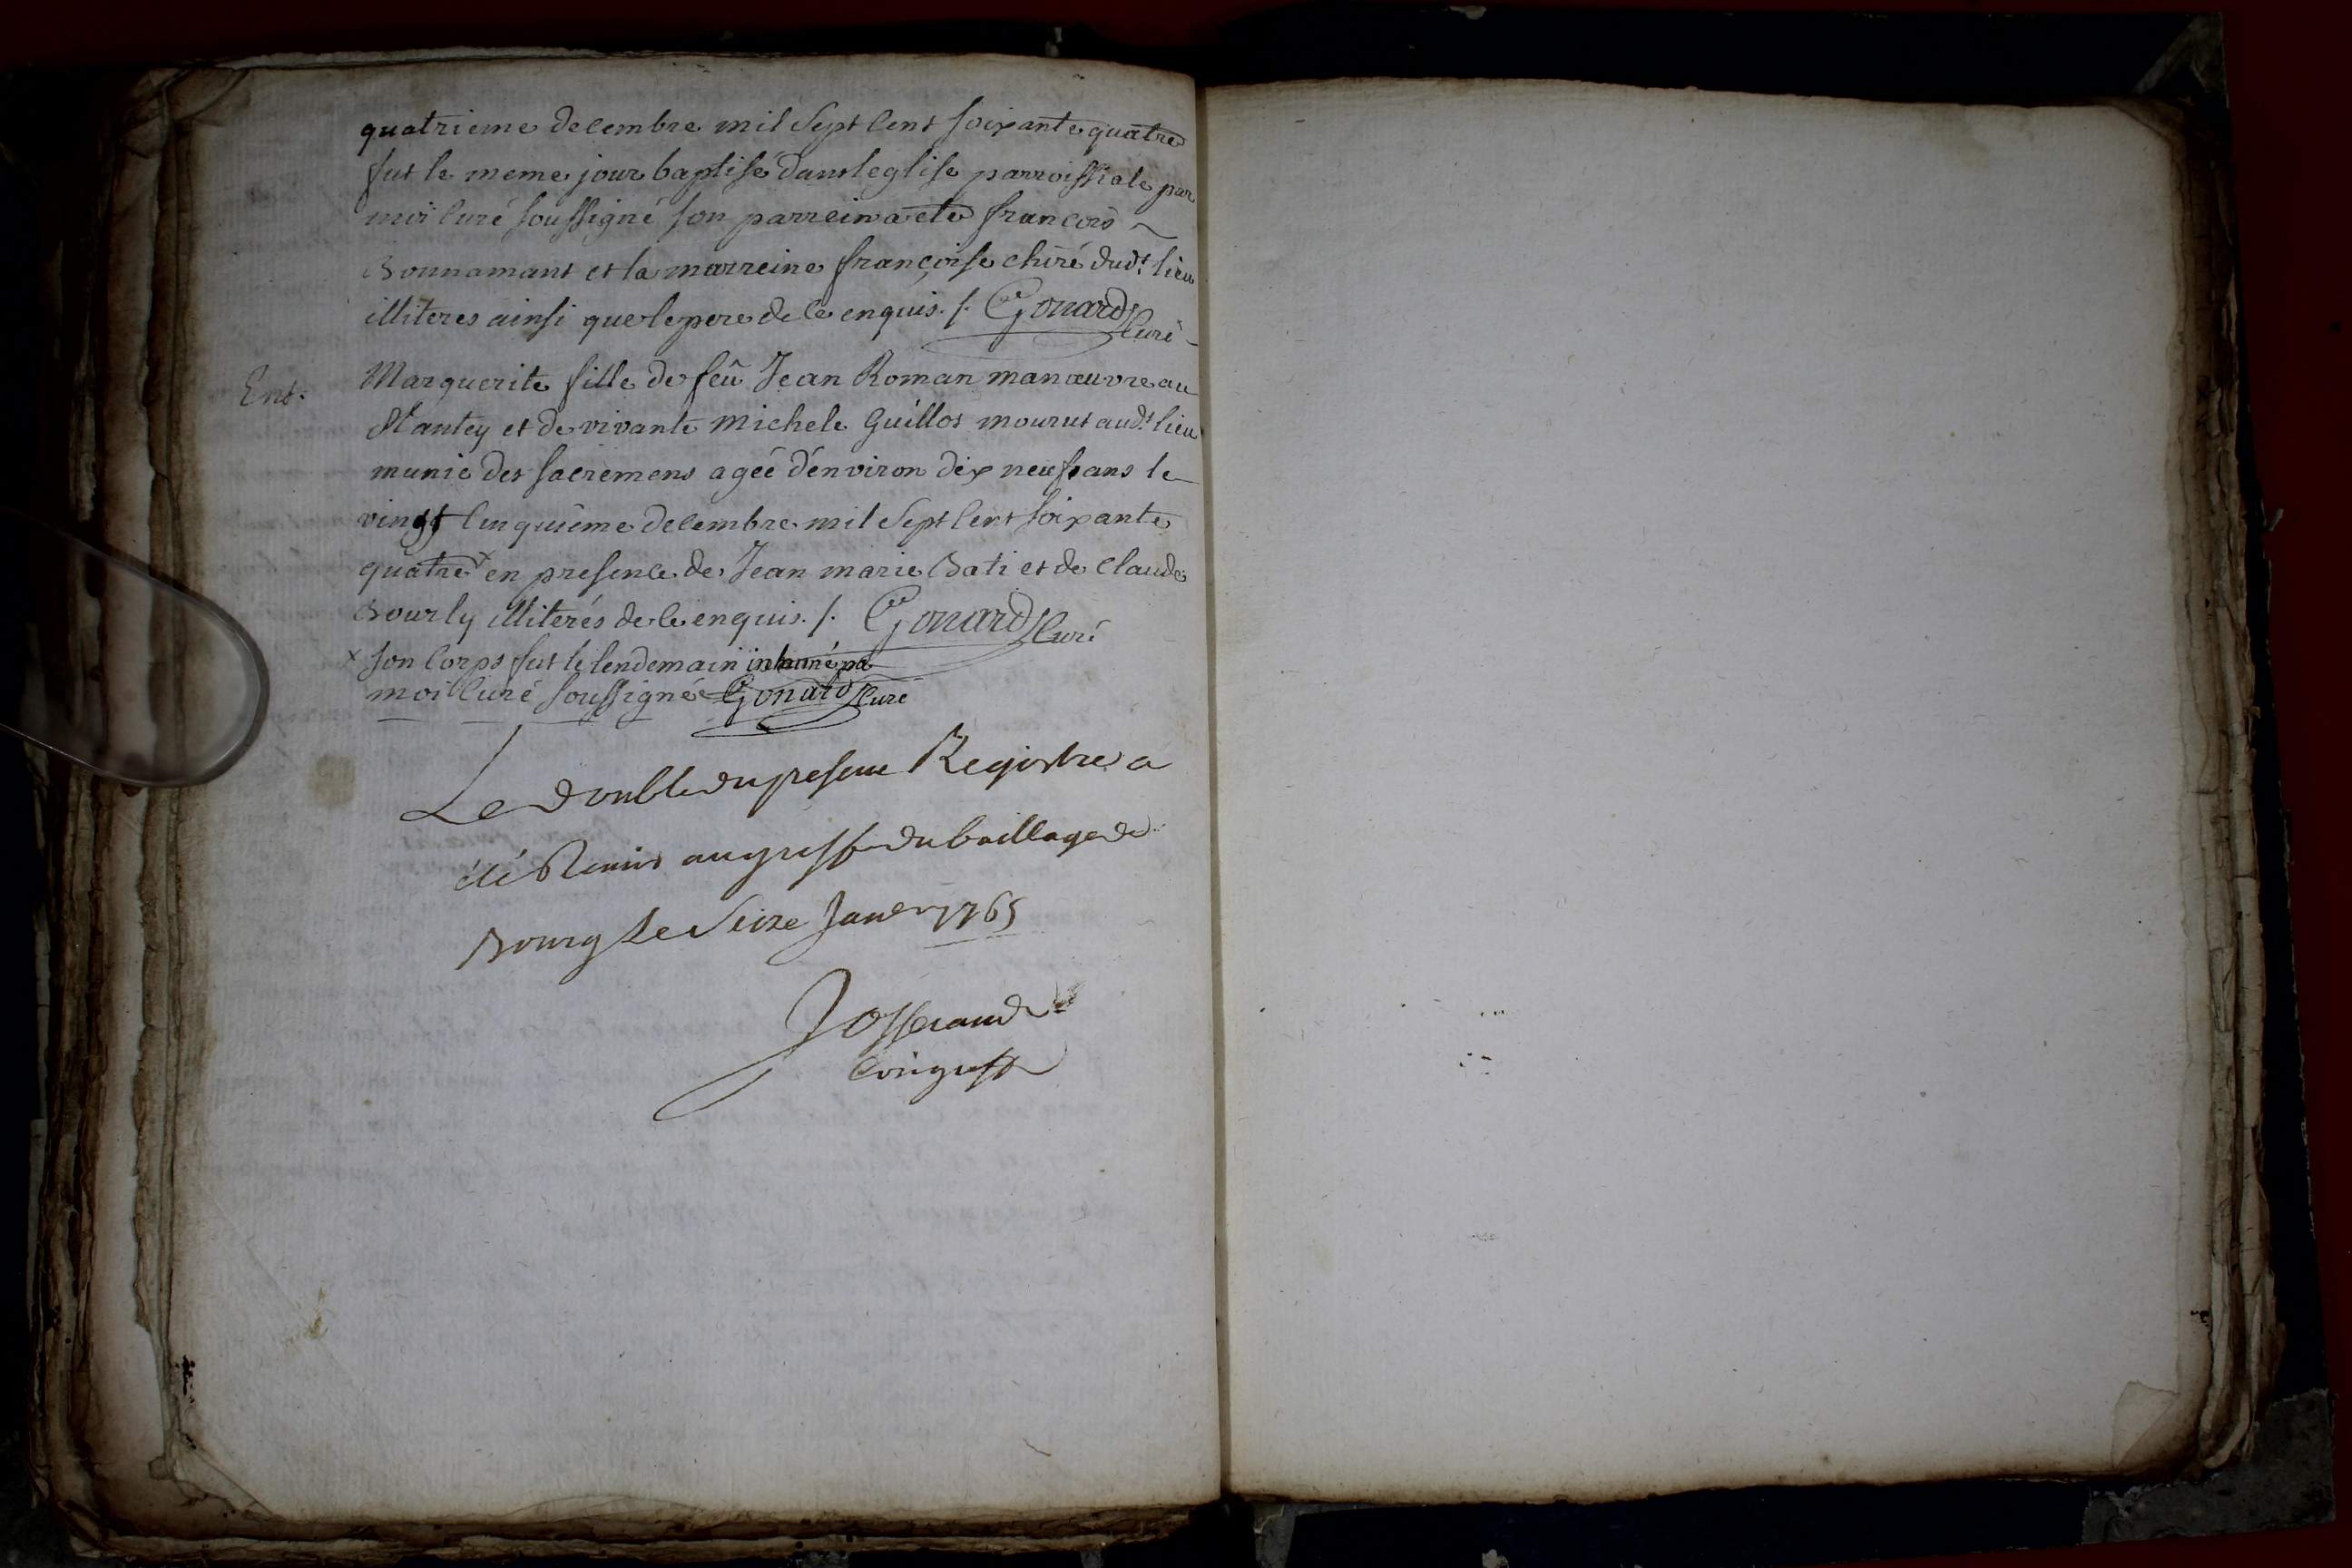 quatrieme decembre mil sept cent soixante quatre
fut le meme jour baptisé dans l'eglise parroissiale par
moi curé soussigné son parrein a eté francois ~
Bonnamant et la marreine françoise chiré dudt lieu
illiteres ainsi que le pere de ce enquis ./. Gonard curé
Ent.
Marguerite fille de feû Jean Roman manœuvre au
Nantey et de vivante Michele Guillot mourut audt lieu
munie des sacremens agée d'environ dix neuf ans le
vingt cinquième decembre mil sept cent soixante
quatre x en presence de Jean marie Bati et de Claude
Bourly illiterés de ce enquis ./. Gonard curé
x son corps fut le lendemain inhumé par
moi curé soussigné Gonard curé
Le double du present Registre a
été Remis au greffe du bailliage de
Bourg Le Seize Janer 1765
Josserand
Comgreff